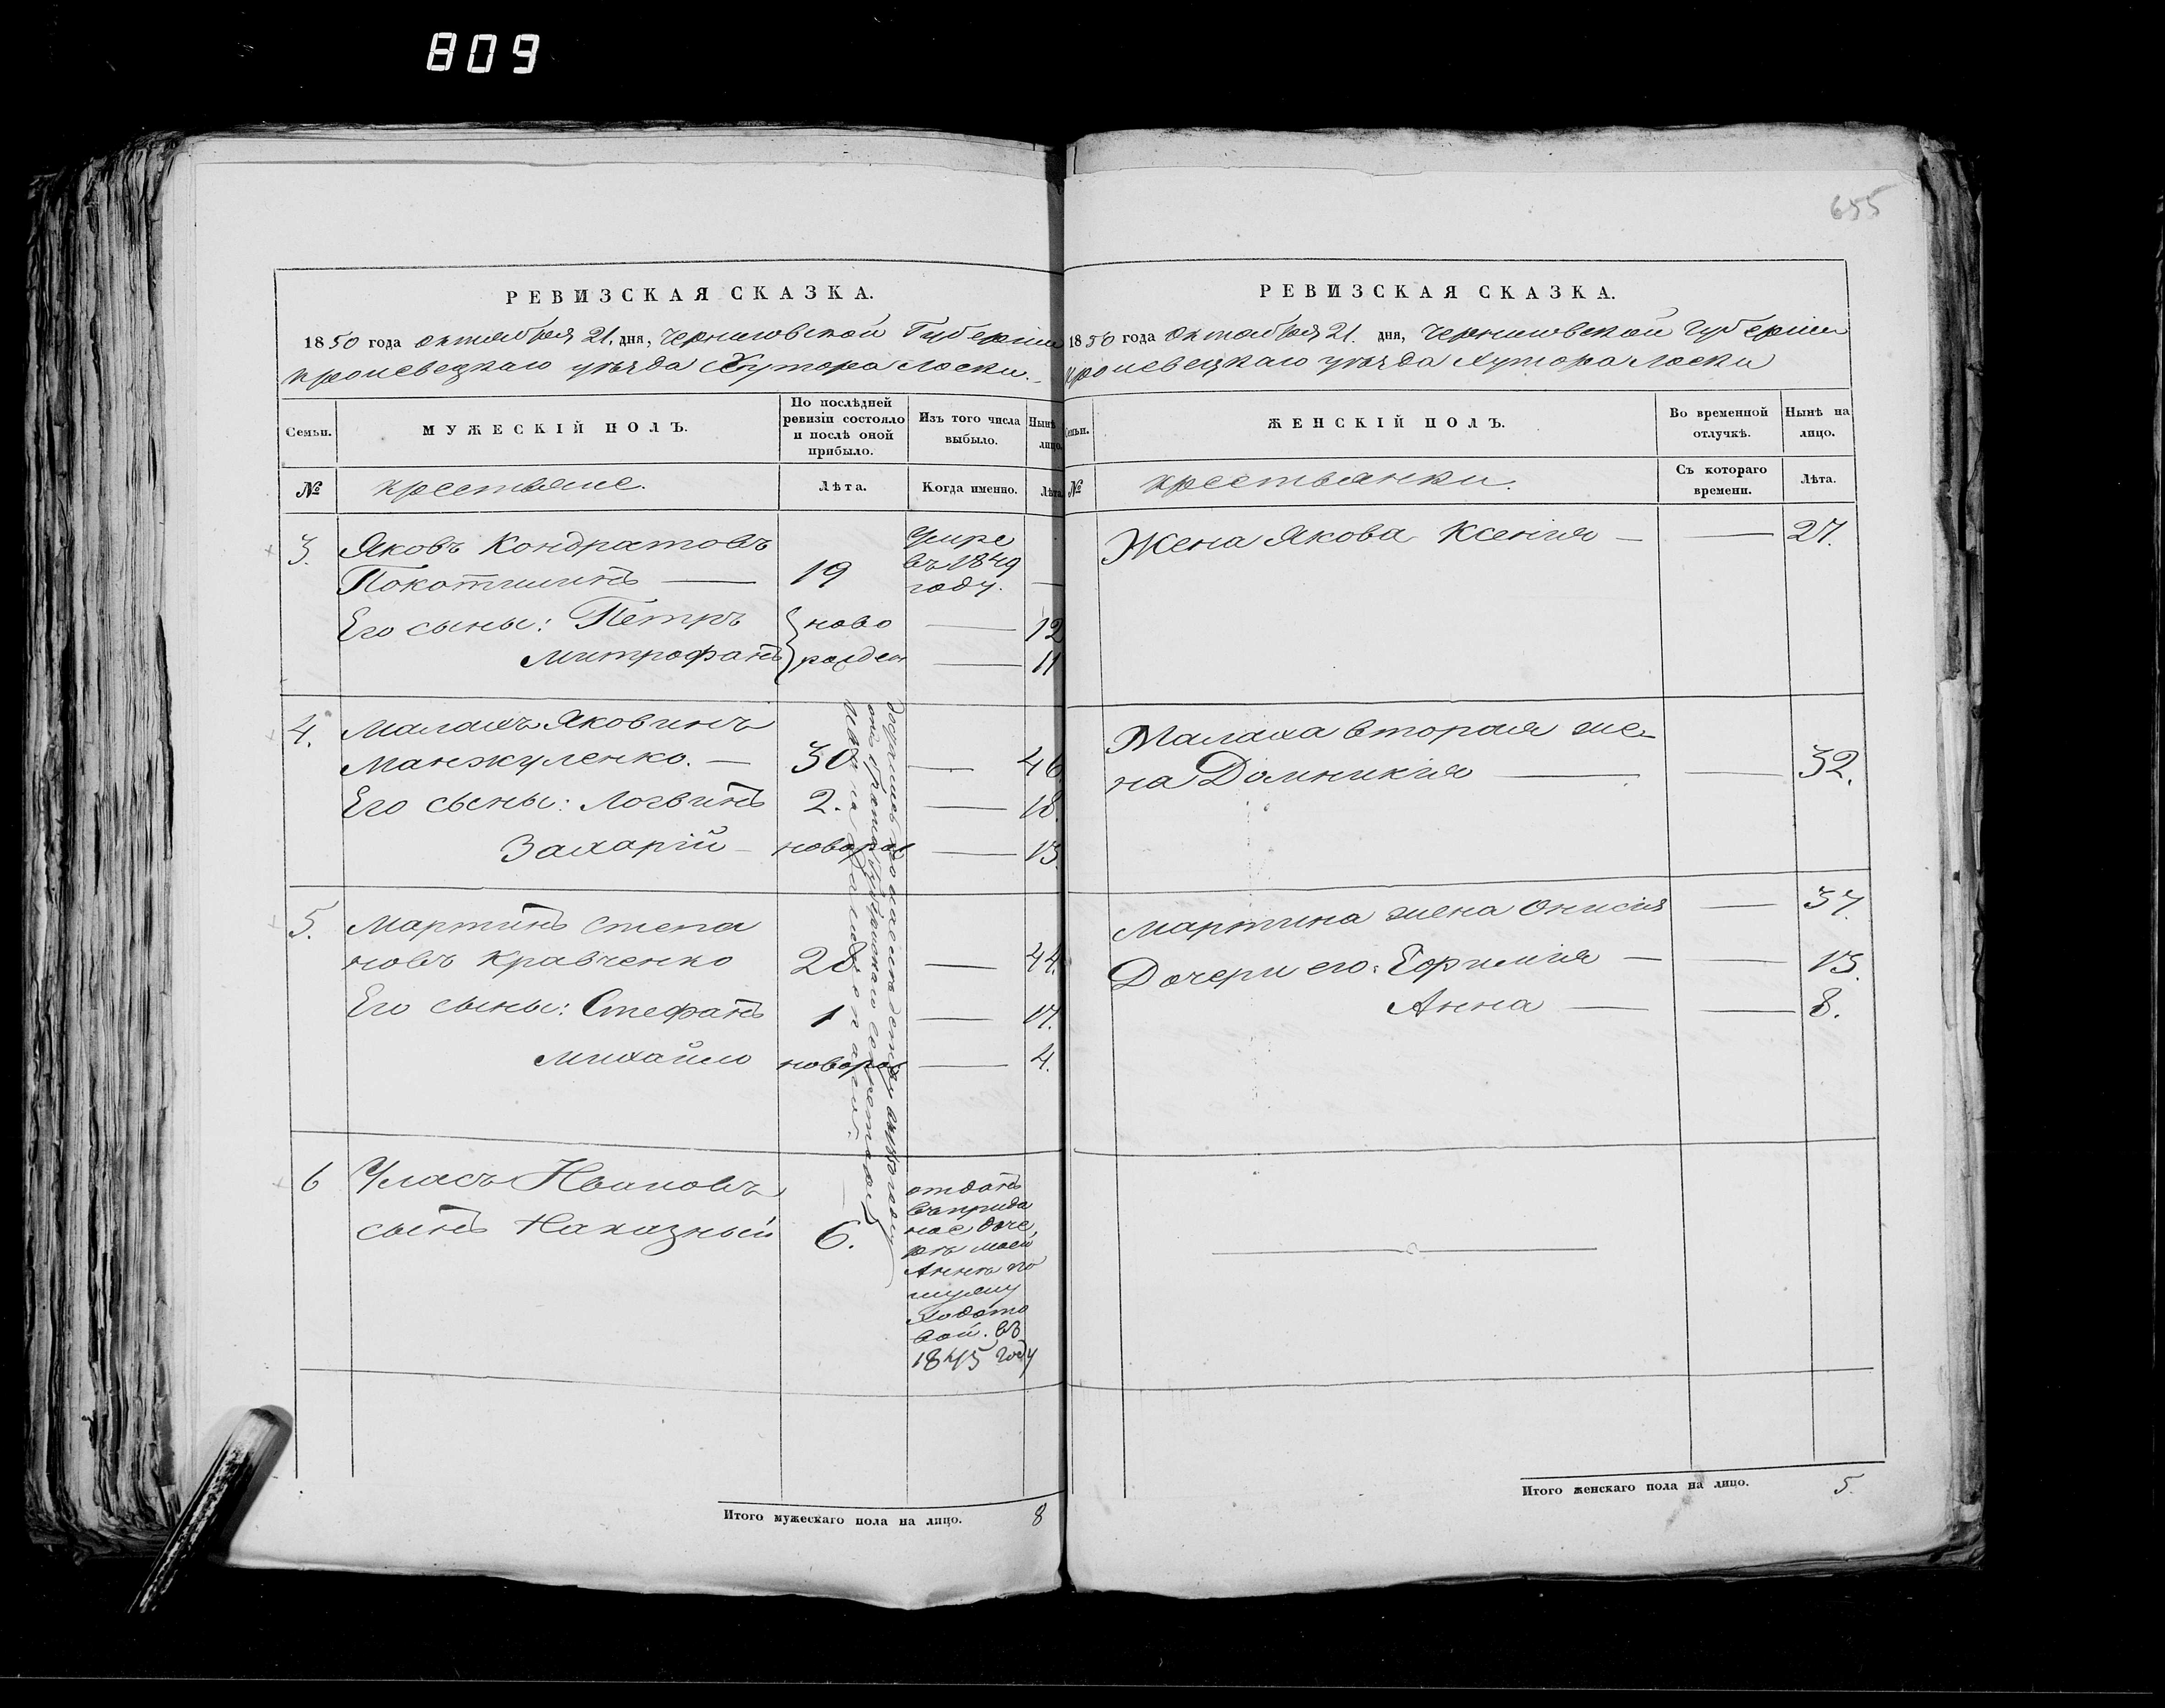 809
655
РЕВИЗСКАЯ СКАЗКА.
1850 года октября 21. дня, Черниговской Губернии
Кролевецкаго уѣзда Хутора Лоски.
Семьи.
МУЖЕСКІЙ ПОЛЪ.
По послѣдней ревизіи состояло и послѣ оной прибыло.
Изъ того числа выбыло.
Нынѣ
лицо.
№
крестьяне.
Лѣта.
Когда именно.
Лѣта.
3. Яковъ Кондратовъ
Покотилинъ — 19
Умре
въ 1849
году. —
Его сыны: Петръ ново — 12
Митрофанъ рожден — 11
4. Малахъ Яковинъ
Манжуленко. — 30 — 46.
Его сыны: Логвинъ 2. — 18.
Захарій — новорож — 13.
5. Мартинъ Степа
новъ Кравченко 28 — 44.
Его сыны: Стефанъ 1 — 17.
Михайло новорож — 4.
6 Уласъ Ивановъ
сынъ Наказный 6.
отданъ
въ прида
ное доче
рѣ моей
Аннѣ по
мужу
вой. въ
1845 году
Итого мужескаго пола на лицо. 8
РЕВИЗСКАЯ СКАЗКА.
1850 года Октября 21. дня, Черниговской Губерніи
Кролевецкаго уѣзда Хутора Лоски
Семьи.
ЖЕНСКІЙ ПОЛЪ.
Во временной отлучкѣ.
Нынѣ на лицо.
№
крестьянки.
Съ котораго времени.
Лѣта.
Жена Якова Ксенія — — 27.
Малаха вторая же-
на Домникія — — 32.
Мартина жена Онисія — 37.
Дочери его: Ефимія — — 13.
Анна — — 8.
Итого женскаго пола на лицо. 5.